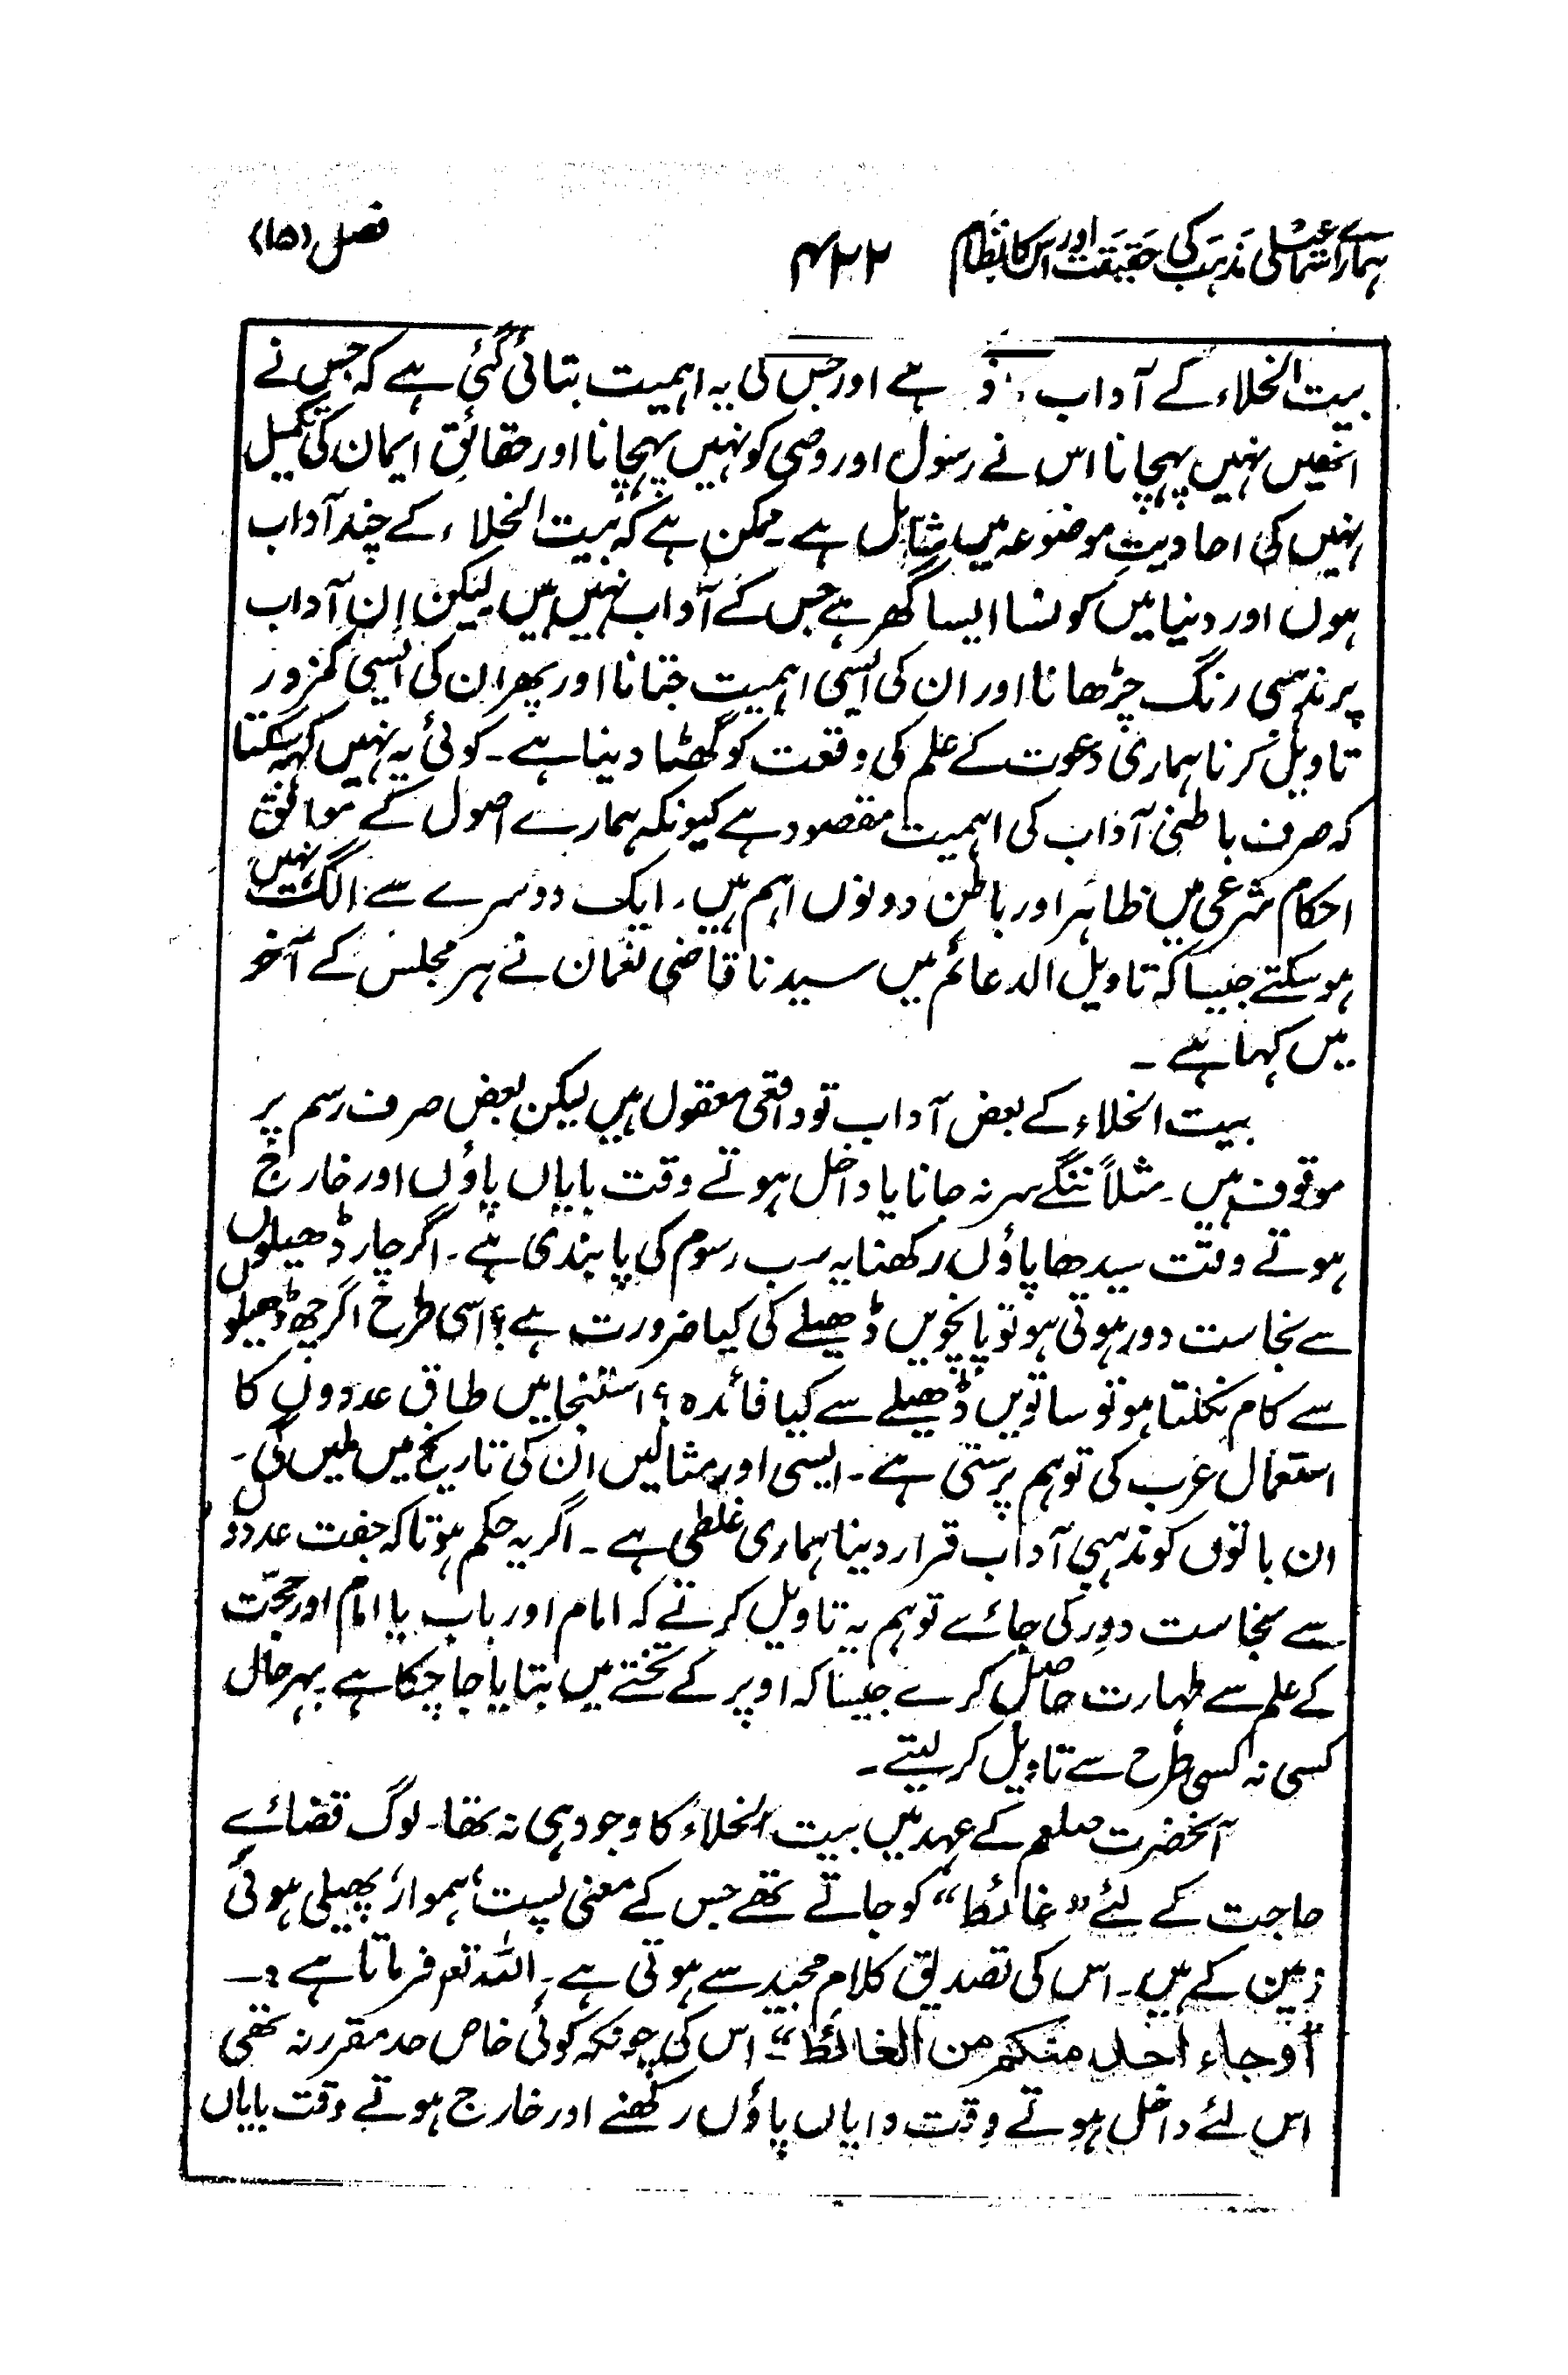 ہمارے اسمٰعیلی مذہب کی حقیقت اور اس کا نظام ۴۲۲ فصل (۱۵)
بیت الخلاء کے آداب ہے اور جس کی یہ اہمیت بتائی گئی ہے کہ جس نے
انھیں نہیں پہچانا اس نے رسول اور وصی کو نہیں پہچانا اور حقائقِ ایمان کی تکمیل
نہیں کی احادیثِ موضوعہ میں شامل ہے۔ ممکن ہے کہ بیت الخلاء کے چند آداب
ہوں اور دنیا میں کونسا ایسا گھر ہے جس کے آداب نہیں ہیں لیکن ان آداب
پر مذہبی رنگ چڑھانا اور ان کی ایسی اہمیت جتانا اور پھر ان کی ایسی کمزور
تاویل کرنا ہماری دعوت کے علم کی وقعت کو گھٹا دینا ہے۔ کوئی یہ نہیں کہہ سکتا
کہ صرف باطنی آداب کی اہمیت مقصود ہے کیونکہ ہمارے اصول کے موافق
احکام شرعی میں ظاہر اور باطن دونوں اہم ہیں۔ ایک دوسرے سے الگ نہیں
ہوسکتے جیسا کہ تاویل الدعائم میں سیدنا قاضی نعمان نے ہر مجلس کے آخر
میں کہا ہے ۔
بیت الخلاء کے بعض آداب تو واقعی معقول ہیں لیکن بعض صرف رسم پر
موقوف ہیں۔ مثلاً ننگے سر نہ جانا یا داخل ہوتے وقت بایاں پاؤں اور خارج
ہوتے وقت سیدھا پاؤں رکھنا یہ سب رسوم کی پابندی ہے۔ اگر چار ڈھیلوں
سے نجاست دور ہوتی ہو تو پانچویں ڈھیلے کی کیا ضرورت ہے؟ اسی طرح اگر چھ ڈھیلوں
سے کام نکلتا ہو تو ساتویں ڈھیلے سے کیا فائدہ؟ استنجا میں طاق عددوں کا
استعمال عرب کی توہم پرستی ہے۔ ایسی اور مثالیں ان کی تاریخ میں ملیں گی۔
ان باتوں کو مذہبی آداب قرار دینا ہماری غلطی ہے ۔ اگر یہ حکم ہوتا کہ جفت عددوں
سے نجاست دور کی جائے تو ہم یہ تاویل کرتے کہ امام اور باب یا امام اور حجّت
کے علم سے طہارت حاصل کرے جیسا کہ اوپر کے تختے میں بتایا جا چکا ہے بہر حال
کسی نہ کسی طرح سے تاویل کرلیتے ۔
آنحضرت صلعم کے عہد میں بیت الخلاء کا وجود ہی نہ تھا۔ لوگ قضائے
حاجت کے لئے "غائط" کو جاتے تھے جس کے معنی پست، ہموار، پھیلی ہوئی
زمین کے ہیں۔ اس کی تصدیق کلام مجید سے ہوتی ہے۔ اللہ تعم فرماتا ہے :۔
اوجاء احد منکم من الغائط"۔ اس کی چونکہ کوئی خاص حد مقرر نہ تھی
اس لئے داخل ہوتے وقت دایاں پاؤں رکھنے اور خارج ہوتے وقت بایاں